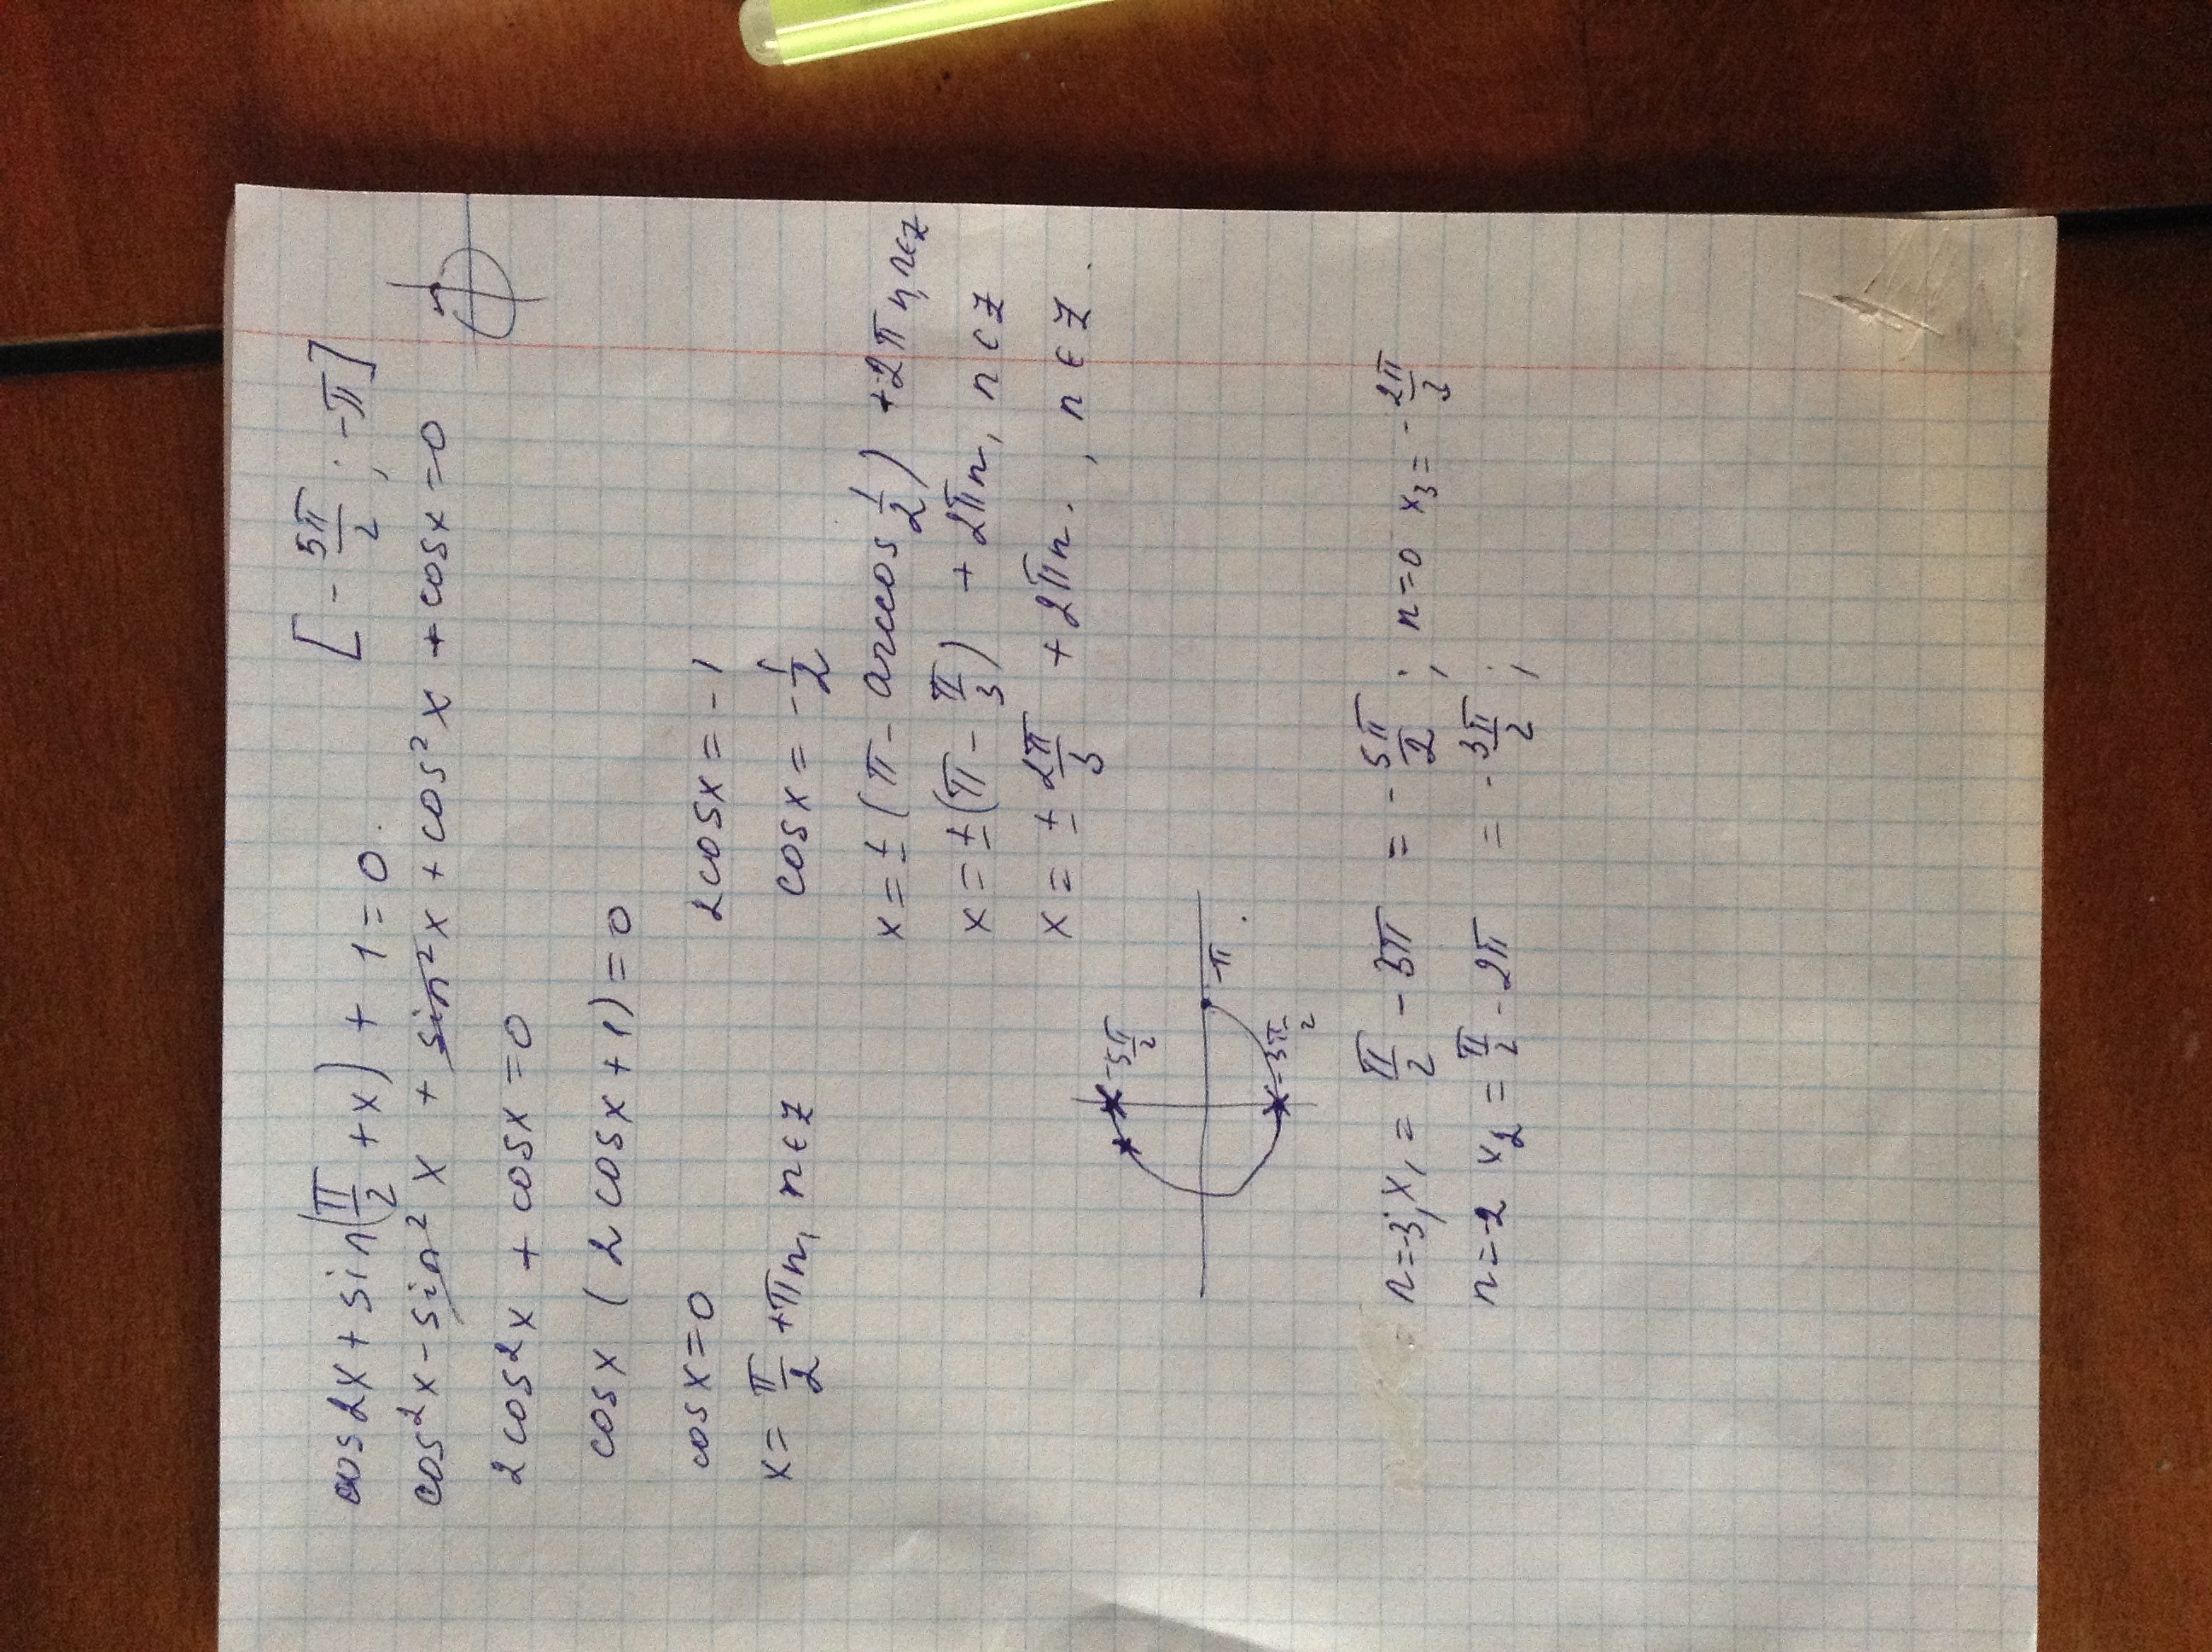 cos2x + sin(π/2 + x) + 1 = 0. [-5π/2; -π]
cos²x - sin²x + sin²x + cos²x + cosx = 0
2cos²x + cosx = 0
cosx (2cosx + 1) = 0
cosx = 0 2cosx = -1
x = π/2 + πn, n∈Z cosx = -1/2
x = ±(π - arccos 1/2) + 2πn, n∈Z
x = ±(π - π/3) + 2πn, n∈Z
x = ± 2π/3 + 2πn. , n∈Z.
-5π/2
-π
-3π/2
n=-3; x₁ = π/2 - 3π = -5π/2; n=0 x₃ = -2π/3
n=-2 x₂ = π/2 - 2π = -3π/2;